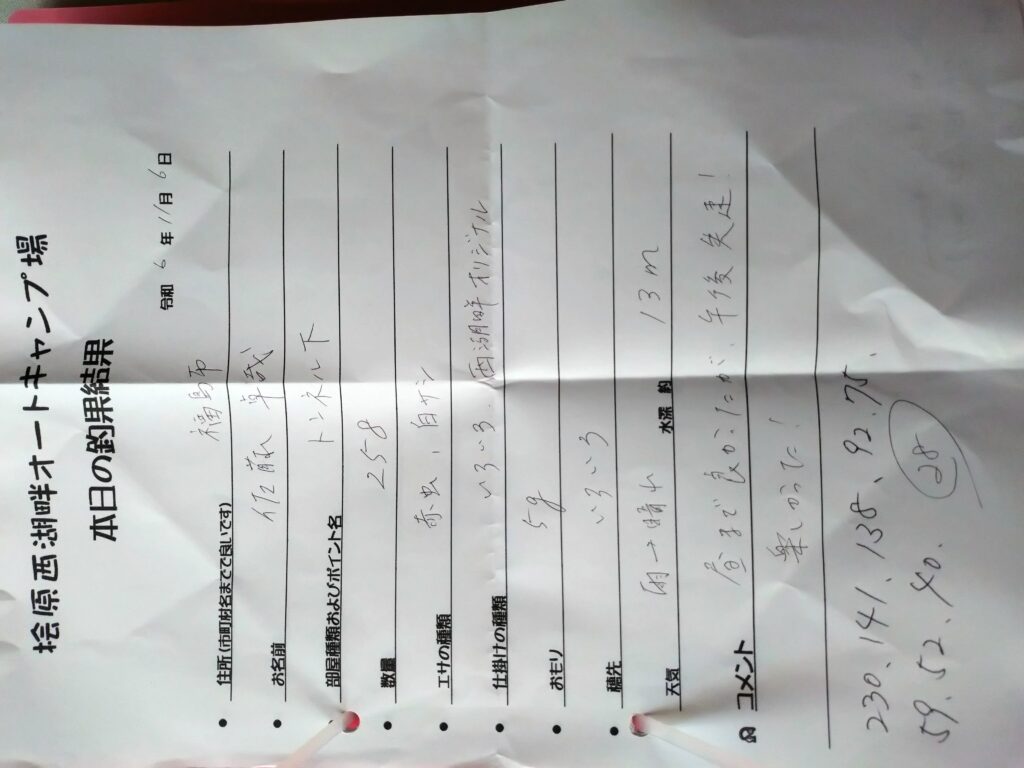 桧原西湖畔オートキャンプ場
本日の釣果結果
令和 6 年 11 月 6 日
• 住所(市町村名までで良いです) 福島市
• お名前 佐藤 卓哉
• 部屋種類およびポイント名 トンネル下
• 数量 258
• エサの種類 赤虫、白サシ
• 仕掛けの種類 いろいろ、西湖畔オリジナル
• おもり 5g
• 穂先 いろいろ
天気 雨→晴れ 水深 約 13m
コメント 昼まで良かったが、午後失速!
楽しかった!
230、141、138、92、75、
59、52、40、 28